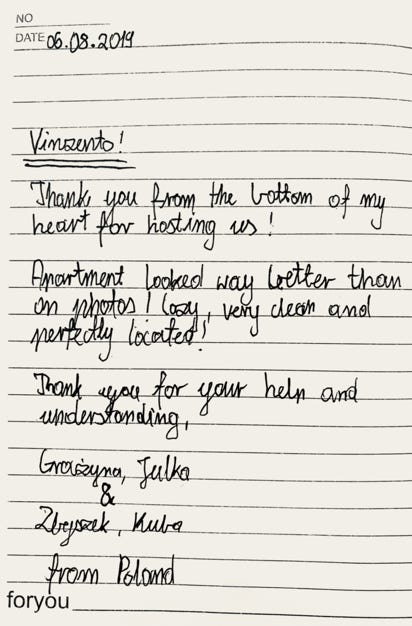 NO
DATE 06.08.2019
Vincento!
Thank you from the bottom of my
heart for hosting us!
Apartment looked way better than
on photos! Cozy, very clean and
perfectly located!
Thank you for your help and
understanding,
Grażyna, Julka
&
Zbyszek, Kuba
from Poland
foryou